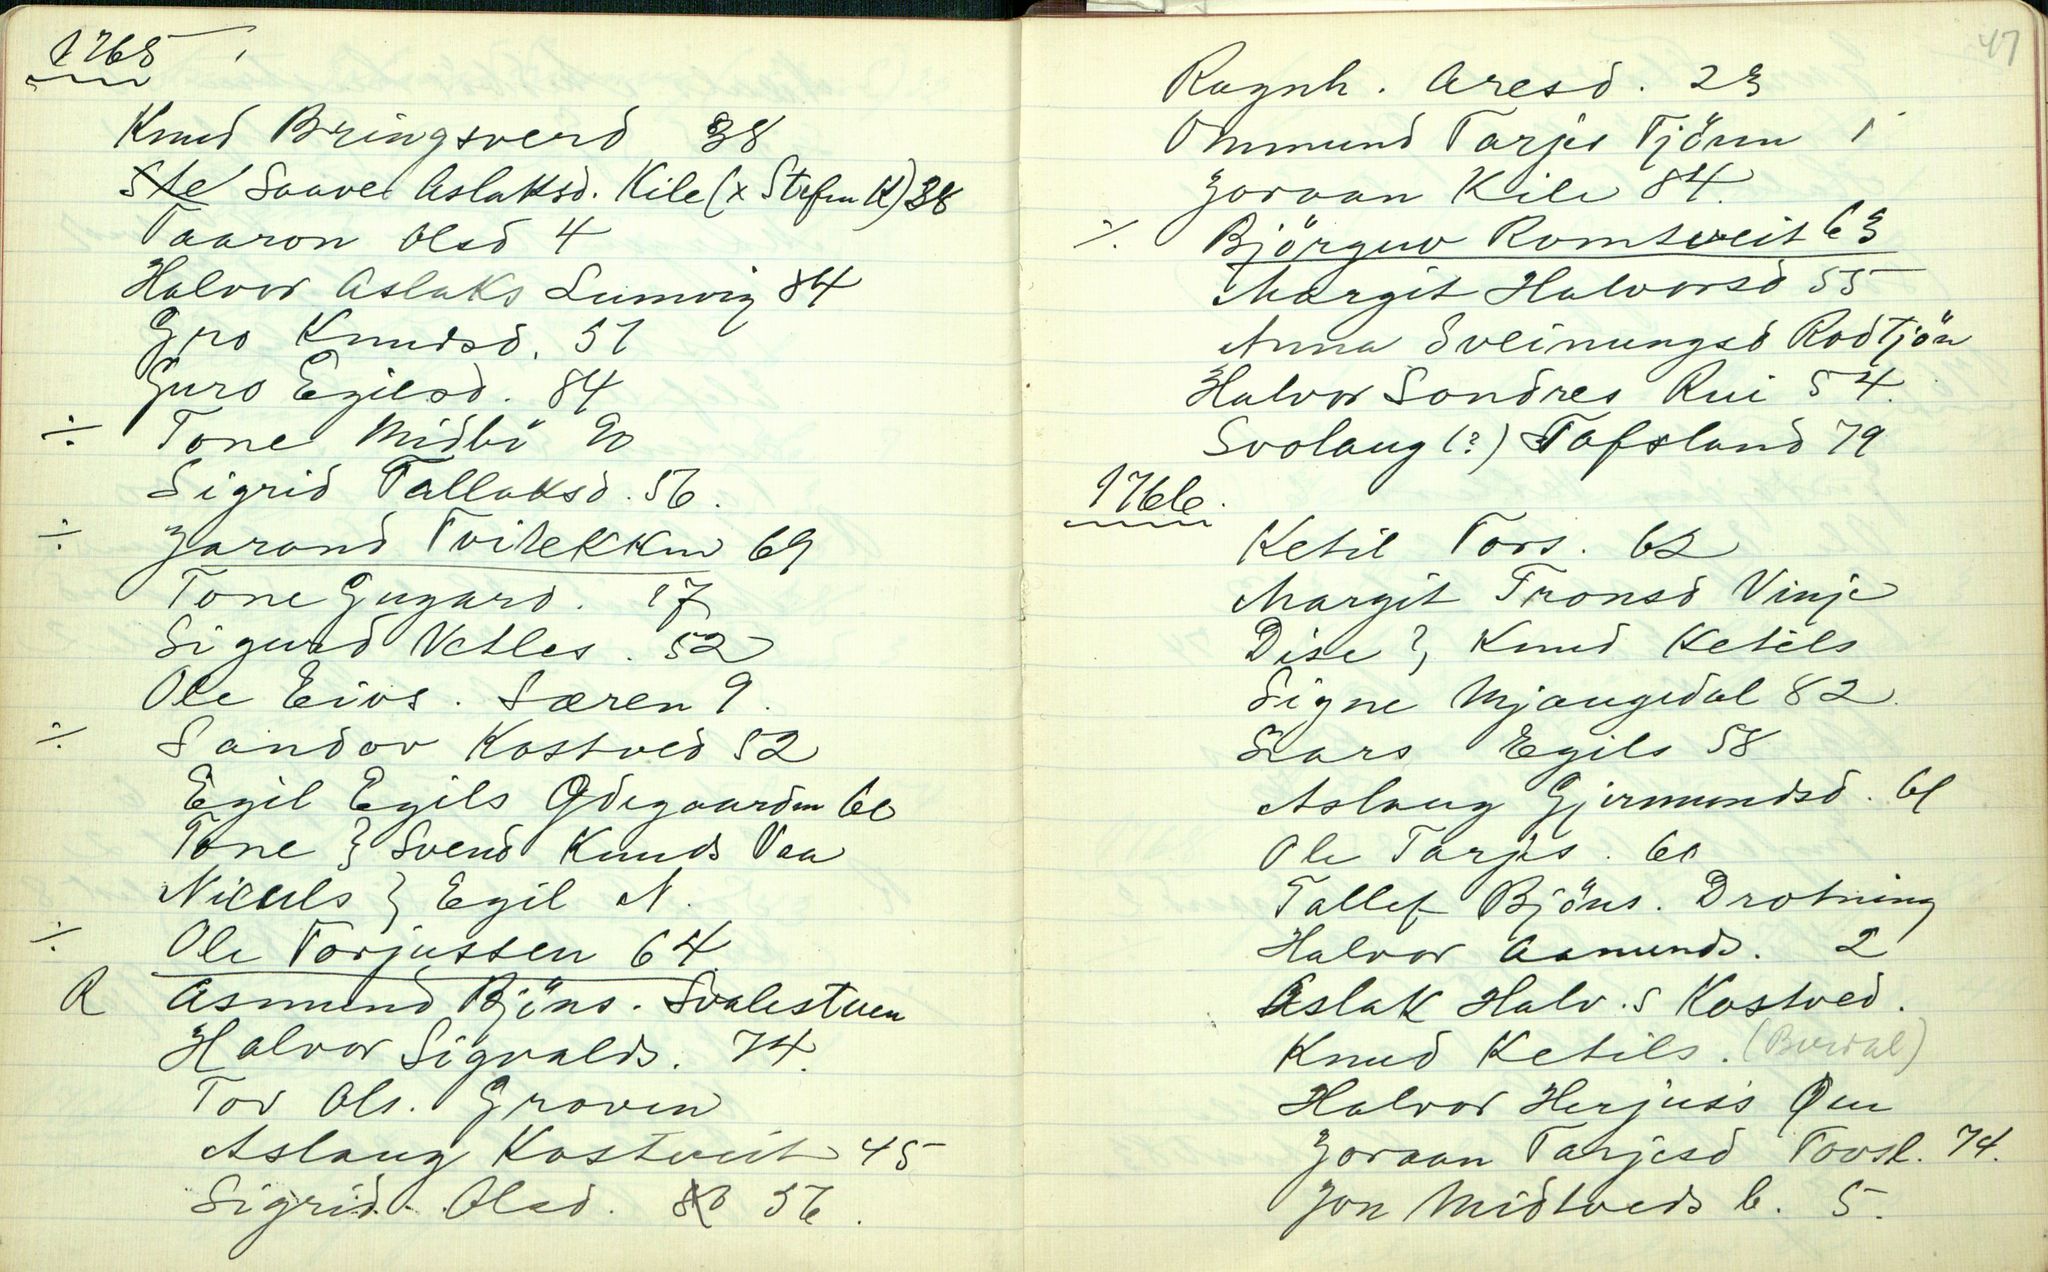 1765
Knud Bringsverd 38
Ste Saave Aslaksd. Kile (x Stefen K) 38
Taaron Olsd 4
Halvor Aslaks Lumvig 84
Gro Knudsd. 57
Guro Egilsd. 84
÷ Tone Midbö 90
Sigrid Tallaksd. 56.
÷ Jarand Tvitekken 69
Tone Gugard. 17
Sigurd Vetles. 52
Ole Eivs. Særen 9.
÷ Sandov Kostved 52
Egil Egils Ødegaarden 60
Tone } Svend Knuds Vaa
Niculs } Egil N.
÷ Ole Torjussen 64
R Asmund Bjöns. Svalestuen
Halvor Sigvalds. 74.
Tov Ols. Groven
Aslaug Kostveit 45
Sigrid Olsd. 80 56.
47
Ragnh. Aresd. 23
Ommund Tarjes Tjönn 1
Joraan Kile 84.
÷ Björguv Romtveit 63
Margit Halvorsd 55
Anna Sveinungsd Rodtjön
Halvor Sondres Rui 54.
Svolaug (?) Tafsland 79
1766.
Ketil Tors. 62
Margit Tronsd Vinje
Dise ?, Knud Ketils
Signe Mjaugedal 82.
Lars Egils 58
Aslaug Gjermundsd. 61
Ole Tarjes. 60
Tallef Bjöns. Drotning
Halvor Aamunds. 2
Aslak Halv.s Kostved.
Knud Ketils. (Berdal)
Halvor Herjus's Øen
Joraan Tarjesd Tovsl. 74.
Jon Midtveds b. 5.